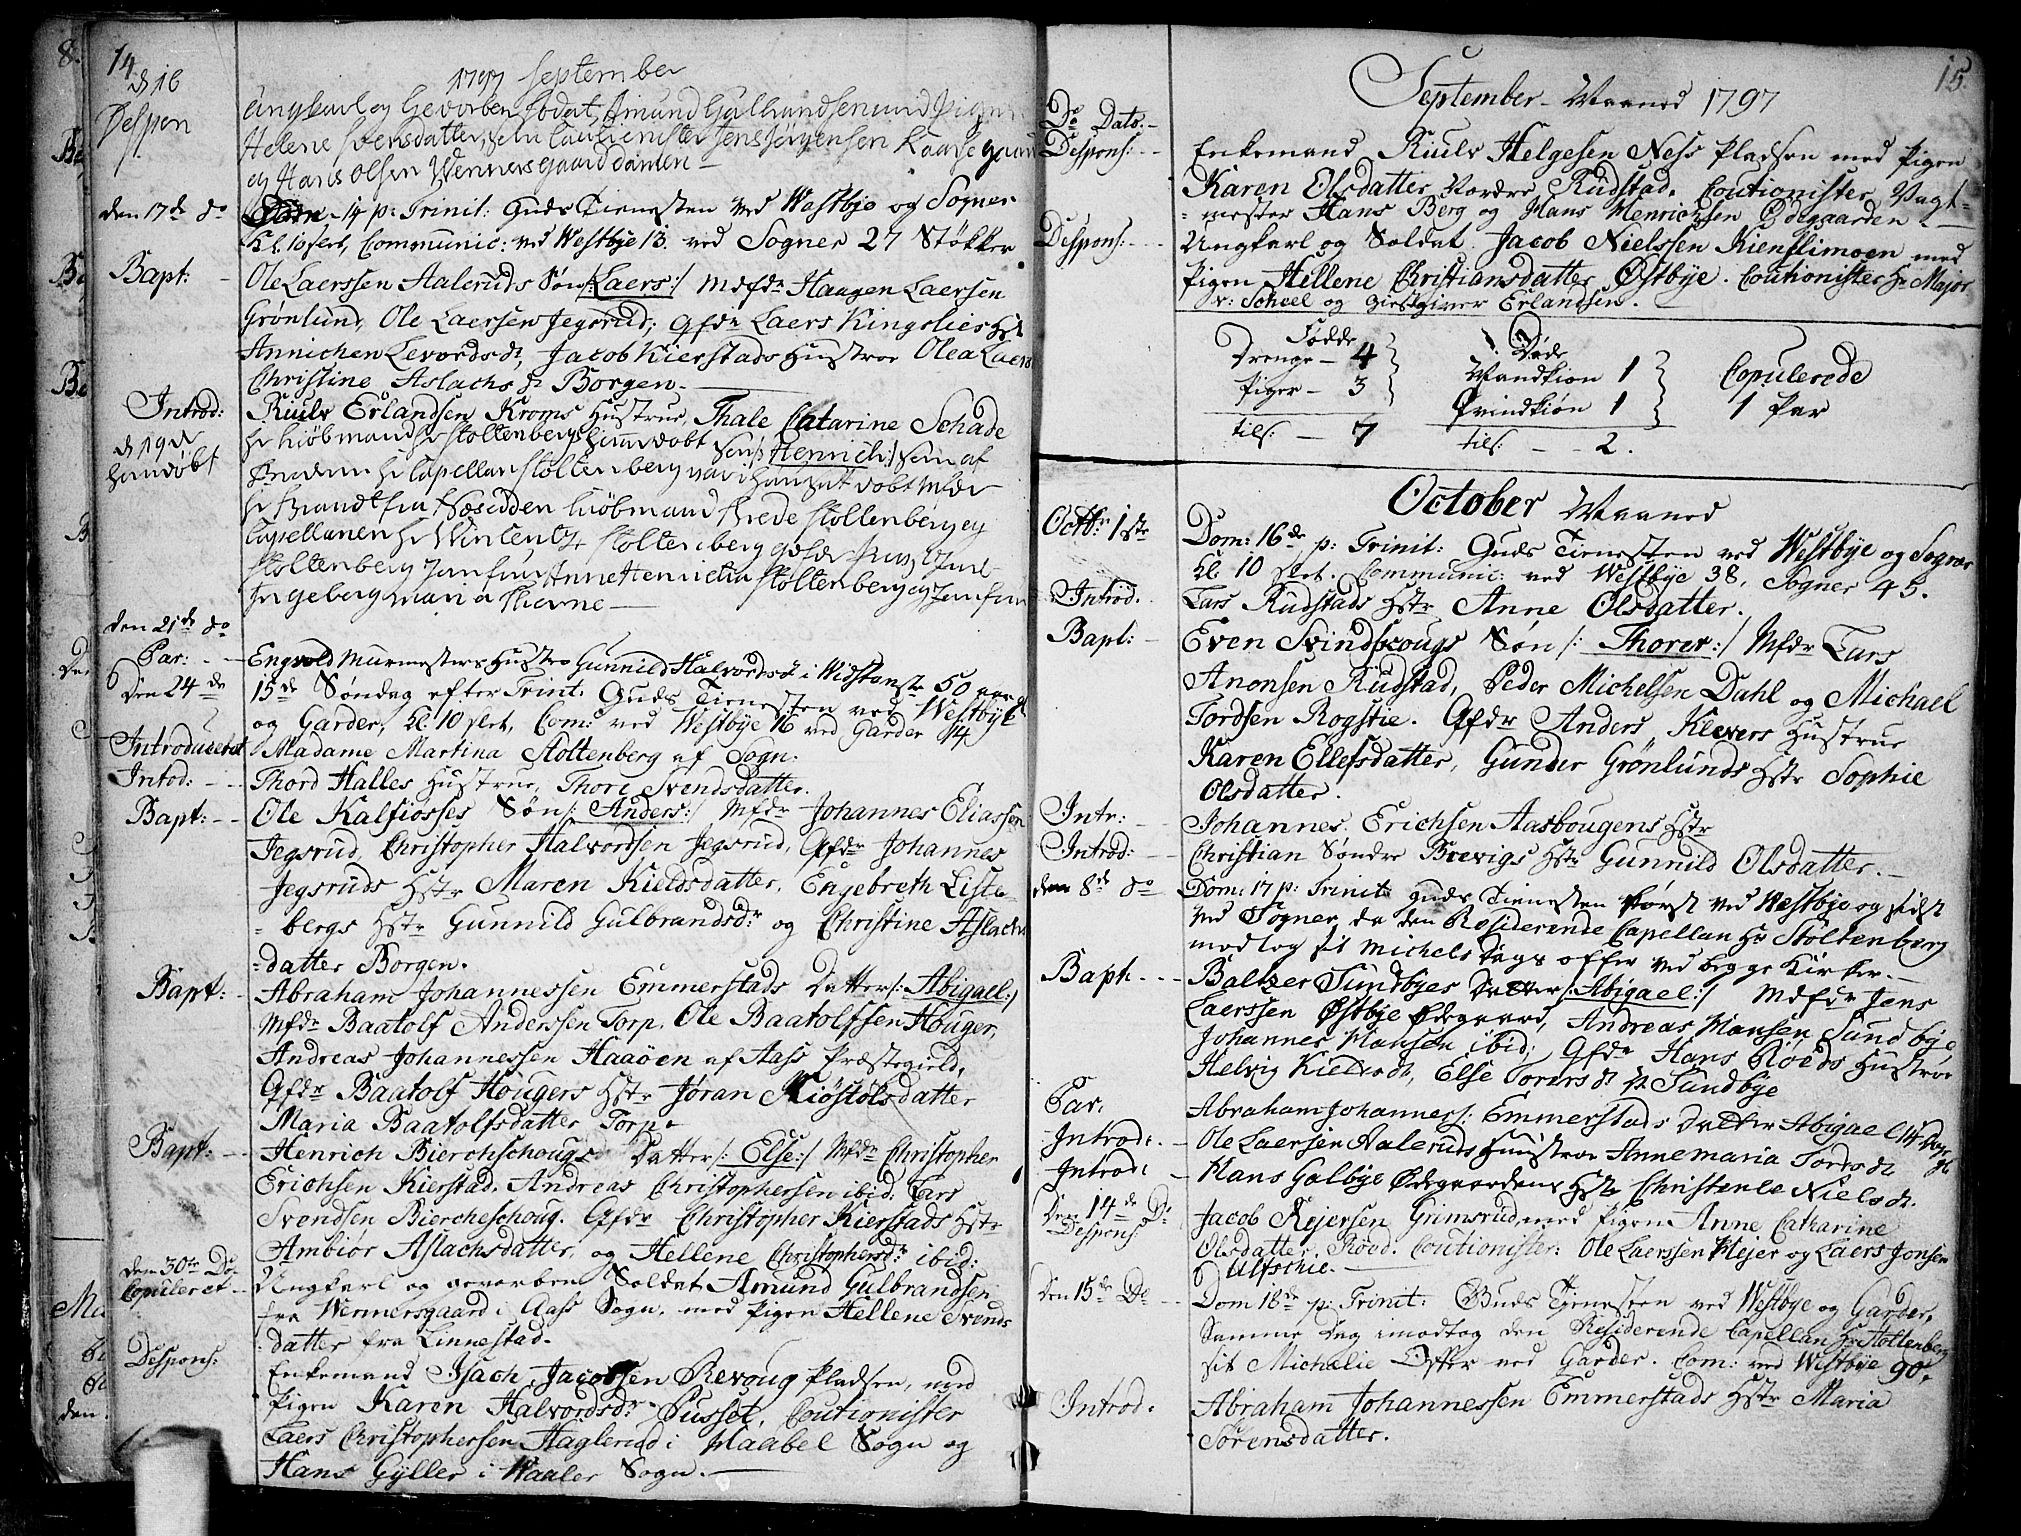 14
1797 September
d 16
Despon
Ungkarl og Gevorben Sodat, Amund Gulbrandsen und Pigen
Helene Svensdatter, Cautionister Jens Jörgensen
og Hans Olsen Wennersgaard
den 17de do
14 p: Trinit: Guds Tienesten ved Westbye og Sogner
Kl. 10 slet, Communic: ved Westbye 13. ved Sogner 27 Støkker
Bapt:
Ole Laerssen Aaleruds Søn /:Laers:/ Mdfdr Haagen Laersen
Grönlund, Ole Laersen Jegsrud; Qfdr Laers Kingslies Hst
Annichen Levordsdt, Jacob Kierstads Hustroe Olea Laers
Christine Aslachsdt Borgen.
Introd:
Riulv Erlandsen Kroms Hustrue, Thale Catarine Schade
d 19de
hiemdøbt
Hr Kiöbmand Hr Stoltenbergs hiemdøbt Søn /:Henrich:/ som af
Hr Capellan Stoltenberg var i Huuset døbt Mfdr
Hr Brandt fra Kiöbmand Stoltenberg og
Capellanen Hr Wincentz Stoltenberg Qvfdr
Stoltenberg Jomfru Anne Henrietta Stoltenberg og Jomfru
Ingeberg Maria Thorne
den 21de do
Par:
Engvold Murmesters Hustro Gunnild Halvordsdt i Widsteens 50 aar
Den 24de
15de Søndag efter Trint. Guds Tienesten ved Westbye
og Garder, Kl. 10 slet, Com: ved Westbye 16 ved Garder 14
Introduceret
Madame Martina Stoltenberg af Sogn.
Intod:
Thord Halles Hustrue, Thore Svendsdatter.
Bapt:
Ole Kalfiosses Søn /:Anders:/ Mfdr Johannes Eliassen
Jegsrud, Christopher Halvordsen Jegsrud, Qfdr Johannes
Jegsruds Hstr Maren Kieldsdatter, Engebreth Liste-
bergs Hstr Gunnild Gulbrandsdr og Christine Aslachs
datter Borgen.
Bapt:
Abraham Johannessen Emmerstads Datter /:Abigael:/
Mfdr Baatolf Anderssen Torp, Ole Baatolfsen Houger,
Andreas Johannessen Haaöen af Aass Præstegield,
Qfdr Baatolf Hougers Hstr Jøran Miöstölsdatter
Maria Baatolfsdatter Torp.
Bapt:
Henrich Bierchschougs Datter /:Else:/ Mfdr Christopher
Erichsen Kierstad, Andreas Christophersen ibid: Lars
Svendsen Biercheschoug. Qfdr Christopher Kierstads Hstr
Ambiör Aslachsdatter, og Hellene Christophersdr ibid:
den 30te Do
Copuleret
Ungkarl og gevorben Soldat Amund Gulbrandsen
fra Wennersgaard i Aass Sogn, med Pigen Hellene Svends
datter fra Linnestad.
Despons:
Enkemand Isach Jacobsen Revoug Pladsen, med
Pigen Karen Halvordsdr Pusset, Coutionister
Laers Christophersen Haglerud i Maabel Sogn og
Hans Gyller i Waaler Sogn.
15.
September Maaned 1797
Do Dato.
Despons:
Enkemand Riulv Helgesen Ness Pladsen med Pigen
Karen Olsdatter Nordre Rudstad. Coutionister Vagt-
mester Hans Berg og Hans Henrichsen Ødegaarden
Despons:
Ungkarl og Soldat Jacob Nielssen Kienslimoen med
Pigen Hellene Christiansdatter Østbye. Coutionister Hr Major
v: Scheel og Giestgiver Erlandsen.
Fødde
Drenge - 4
Piger - 3
tils: - 7
Døde
Mandkion 1
Qvindkiön 1
tils: - - 2.
Copulerede
1 Par
October Maaned
Octbr 1ste
Dom: 16de p: Trinit: Guds Tienesten ved Westbye og Sogner
kl: 10 slet. Communic: ved Westbye 38, Sogner 45.
Introd.
Lars Rudstads Hstr Anne Olsdatter.
Bapt:
Even Svindscougs Søn /:Thorer:/ Mfdr Lars
Anonsen Rudstad, Peder Michelsen Dahl og Michael
Tordsen Rogstie. Qfdr Anders Klevers Hustrue
Karen Ellefsdatter, Gunder Grönlunds Hstr Sophie
Olsdatter.
Intr:
Johannes Erichsen Aasbougens Hstr
Introd:
Christian Søndre Brevigs Hstr Gunnild Olsdatter.
den 8de do
Dom: 17 p: Trinit: Guds Tienesten først ved Westbye og sidst
ved Sogner, da den Residerende Capellan Hr Stoltenberg
modtog sit Michels Dags offer ved begge Kirker.
Bapt.
Baltzer Sundbyes Datter /:Abigael:/ Mdfdr Jens
Laerssen Østbye Ødegaard, Andreas Hansen Sundbye
Johannes Hansen ibid; Qfdr Hans Röeds Hustroe
Helvig Kieldsdt, Else Torersdt p: Sundbye
Par.
Abraham Johanness: Emmerstads Datter Abigael 14 Dage gl.
Introd:
Ole Laersen Aaleruds Huustroe Annemaria Tordsdt
Introd:
Hans Galbye Ødegaardens Hstr Christenle Nielsdt.
Den 14de Do
Despons:
Jacob Rejersen Grimsrud med Pigen Anne Catharine
Olsdatter Röed. Coutionister: Ole Laerssen Mejer og Laers Jonsen
Ulfschie.
Den 15de Do
Dom 18de p: Trinit: Guds Tjenesten ved Westbye og Garder,
Samme Dag imodtog den Residerende Capellan Hr Stoltenberg
sit Michelie Offer ved Garder. Com: ved Westbye 90.
Introd:
Abraham Johannessen Emmerstads Hstr Maria
Sörensdatter.